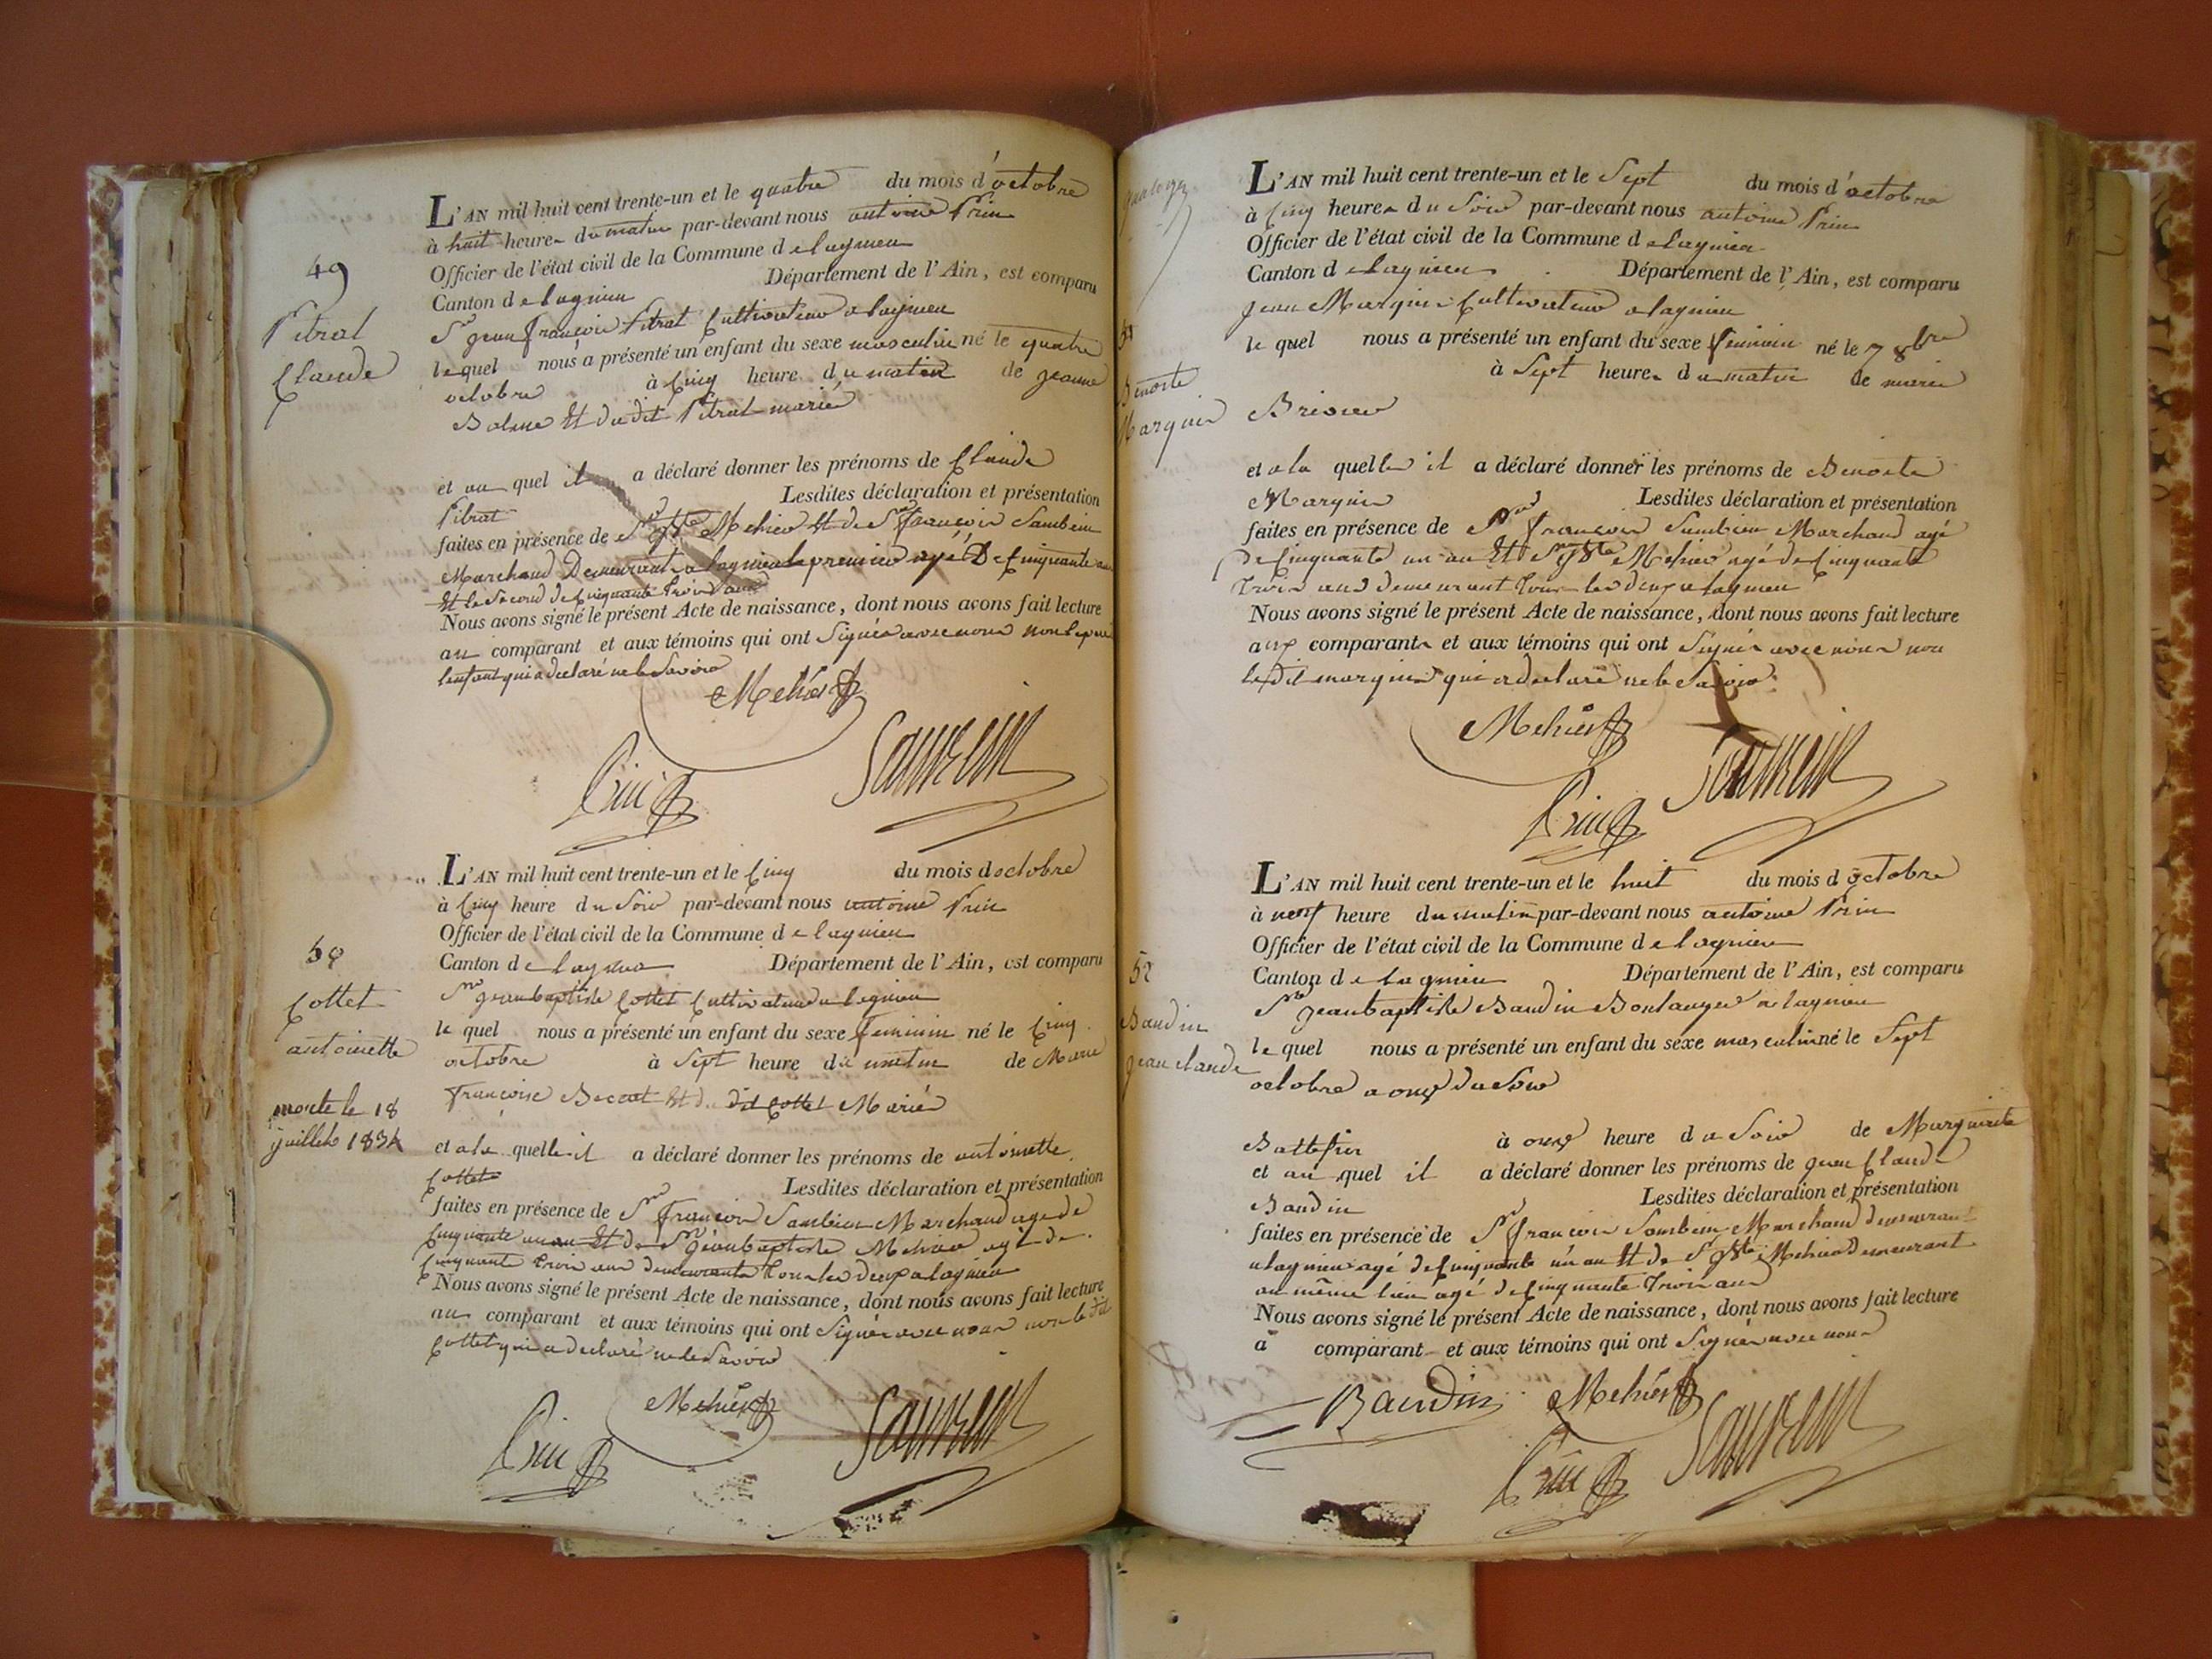 49
Pitrat
Claude
L'AN mil huit cent trente-un et le quatre du mois d'octobre
à huit heures du matin par-devant nous antoine Prin
Officier de l'état civil de la Commune de lagnieu
Canton de lagnieu Département de l'Ain, est comparu
Sr jean françois Pitrat Cultivateur a lagnieu
lequel nous a présenté un enfant du sexe masculin né le quatre
octobre à Cinq heure du matin de jeanne
Balme Et dudit Pitrat marié
et au quel il a déclaré donner les prénoms de Claude
Pitrat Lesdites déclaration et présentation
faites en présence de Sr jn Bte Mehier Et de Sr françois Sambein
Marchand Demeurant a lagnieu le premier agé De Cinquante un
Et le Second de Cinquante trois ans
Nous avons signé le présent Acte de naissance, dont nous avons fait lecture
au comparant et aux témoins qui ont Signés avec nous non le pere
lenfant qui a declaré ne le Savoir
Mehier
Prin Sambein
50
Cottet
antoinette
morte le 18
juillet 1834
L'AN mil huit cent trente-un et le Cinq du mois doctobre
à Cinq heure du Soir par-devant nous antoine Prin
Officier de l'état civil de la Commune de lagnieu
Canton de lagnieu Département de l'Ain, est comparu
Sr jean baptiste Cottet Cultivateur a lagnieu
le quel nous a présenté un enfant du sexe feminin né le Cinq
octobre à Sept heure du matin de Marie
françoise Beccat Et du dit Cottet Mariés
et a la quelle il a déclaré donner les prénoms de antoinette
Cottet Lesdites déclaration et présentation
faites en présence de Sr françois Sambein Marchand age de
Cinquante un an Et de Sr jean baptiste Mehier agé de
Cinquante trois ans demeurants tous les deux a lagnieu
Nous avons signé le présent Acte de naissance, dont nous avons fait lecture
au comparant et aux témoins qui ont Signés avec nous non le dit
Cottet qui a declaré ne le Savoir
Mehier
Prin Sambein
51
Benoite
Marguin
L'AN mil huit cent trente-un et le Sept du mois d'octobre
à Cinq heures du Soir par-devant nous antoine Prin
Officier de l'état civil de la Commune de lagnieu
Canton de lagnieu Département de l'Ain, est comparu
jean Marguin Cultivateur a lagnieu
le quel nous a présenté un enfant du sexe feminin né le 7 8bre
à Sept heures du matin de marie
et a la quelle il a déclaré donner les prénoms de Benoite
Marguin Lesdites déclaration et présentation
faites en présence de Sr françois Sambein Marchand agé
de Cinquante un an Et Sr jn Bte Mehier agé de Cinquante
trois ans demeurant tous les deux a lagnieu
Nous avons signé le présent Acte de naissance, dont nous avons fait lecture
aux comparants et aux témoins qui ont Signés avec nous non
le dit marguin qui a declaré ne le Savoir
Mehier
Prin Sambein
52
Baudin
jean claude
L'AN mil huit cent trente-un et le huit du mois d'octobre
à neuf heure du matin par-devant nous antoine Prin
Officier de l'état civil de la Commune de lagnieu
Canton de lagnieu Département de l'Ain, est comparu
Sr jean baptiste Baudin Boulanger a lagnieu
le quel nous a présenté un enfant du sexe masculin né le Sept
octobre a onze du Soir
à onze heure du Soir de Marguerite
et au quel il a déclaré donner les prénoms de jean Claude
Baudin Lesdites déclaration et présentation
faites en présence de Sr françois Sambein Marchand demeurant
a lagnieu agé de Cinquante un an Et de Sr jn Bte Mehier demeurant
au même lieu agé de Cinquante trois ans
Nous avons signé le présent Acte de naissance, dont nous avons fait lecture
a comparant et aux témoins qui ont Signés avec nous
Baudin Mehier
Prin Sambein